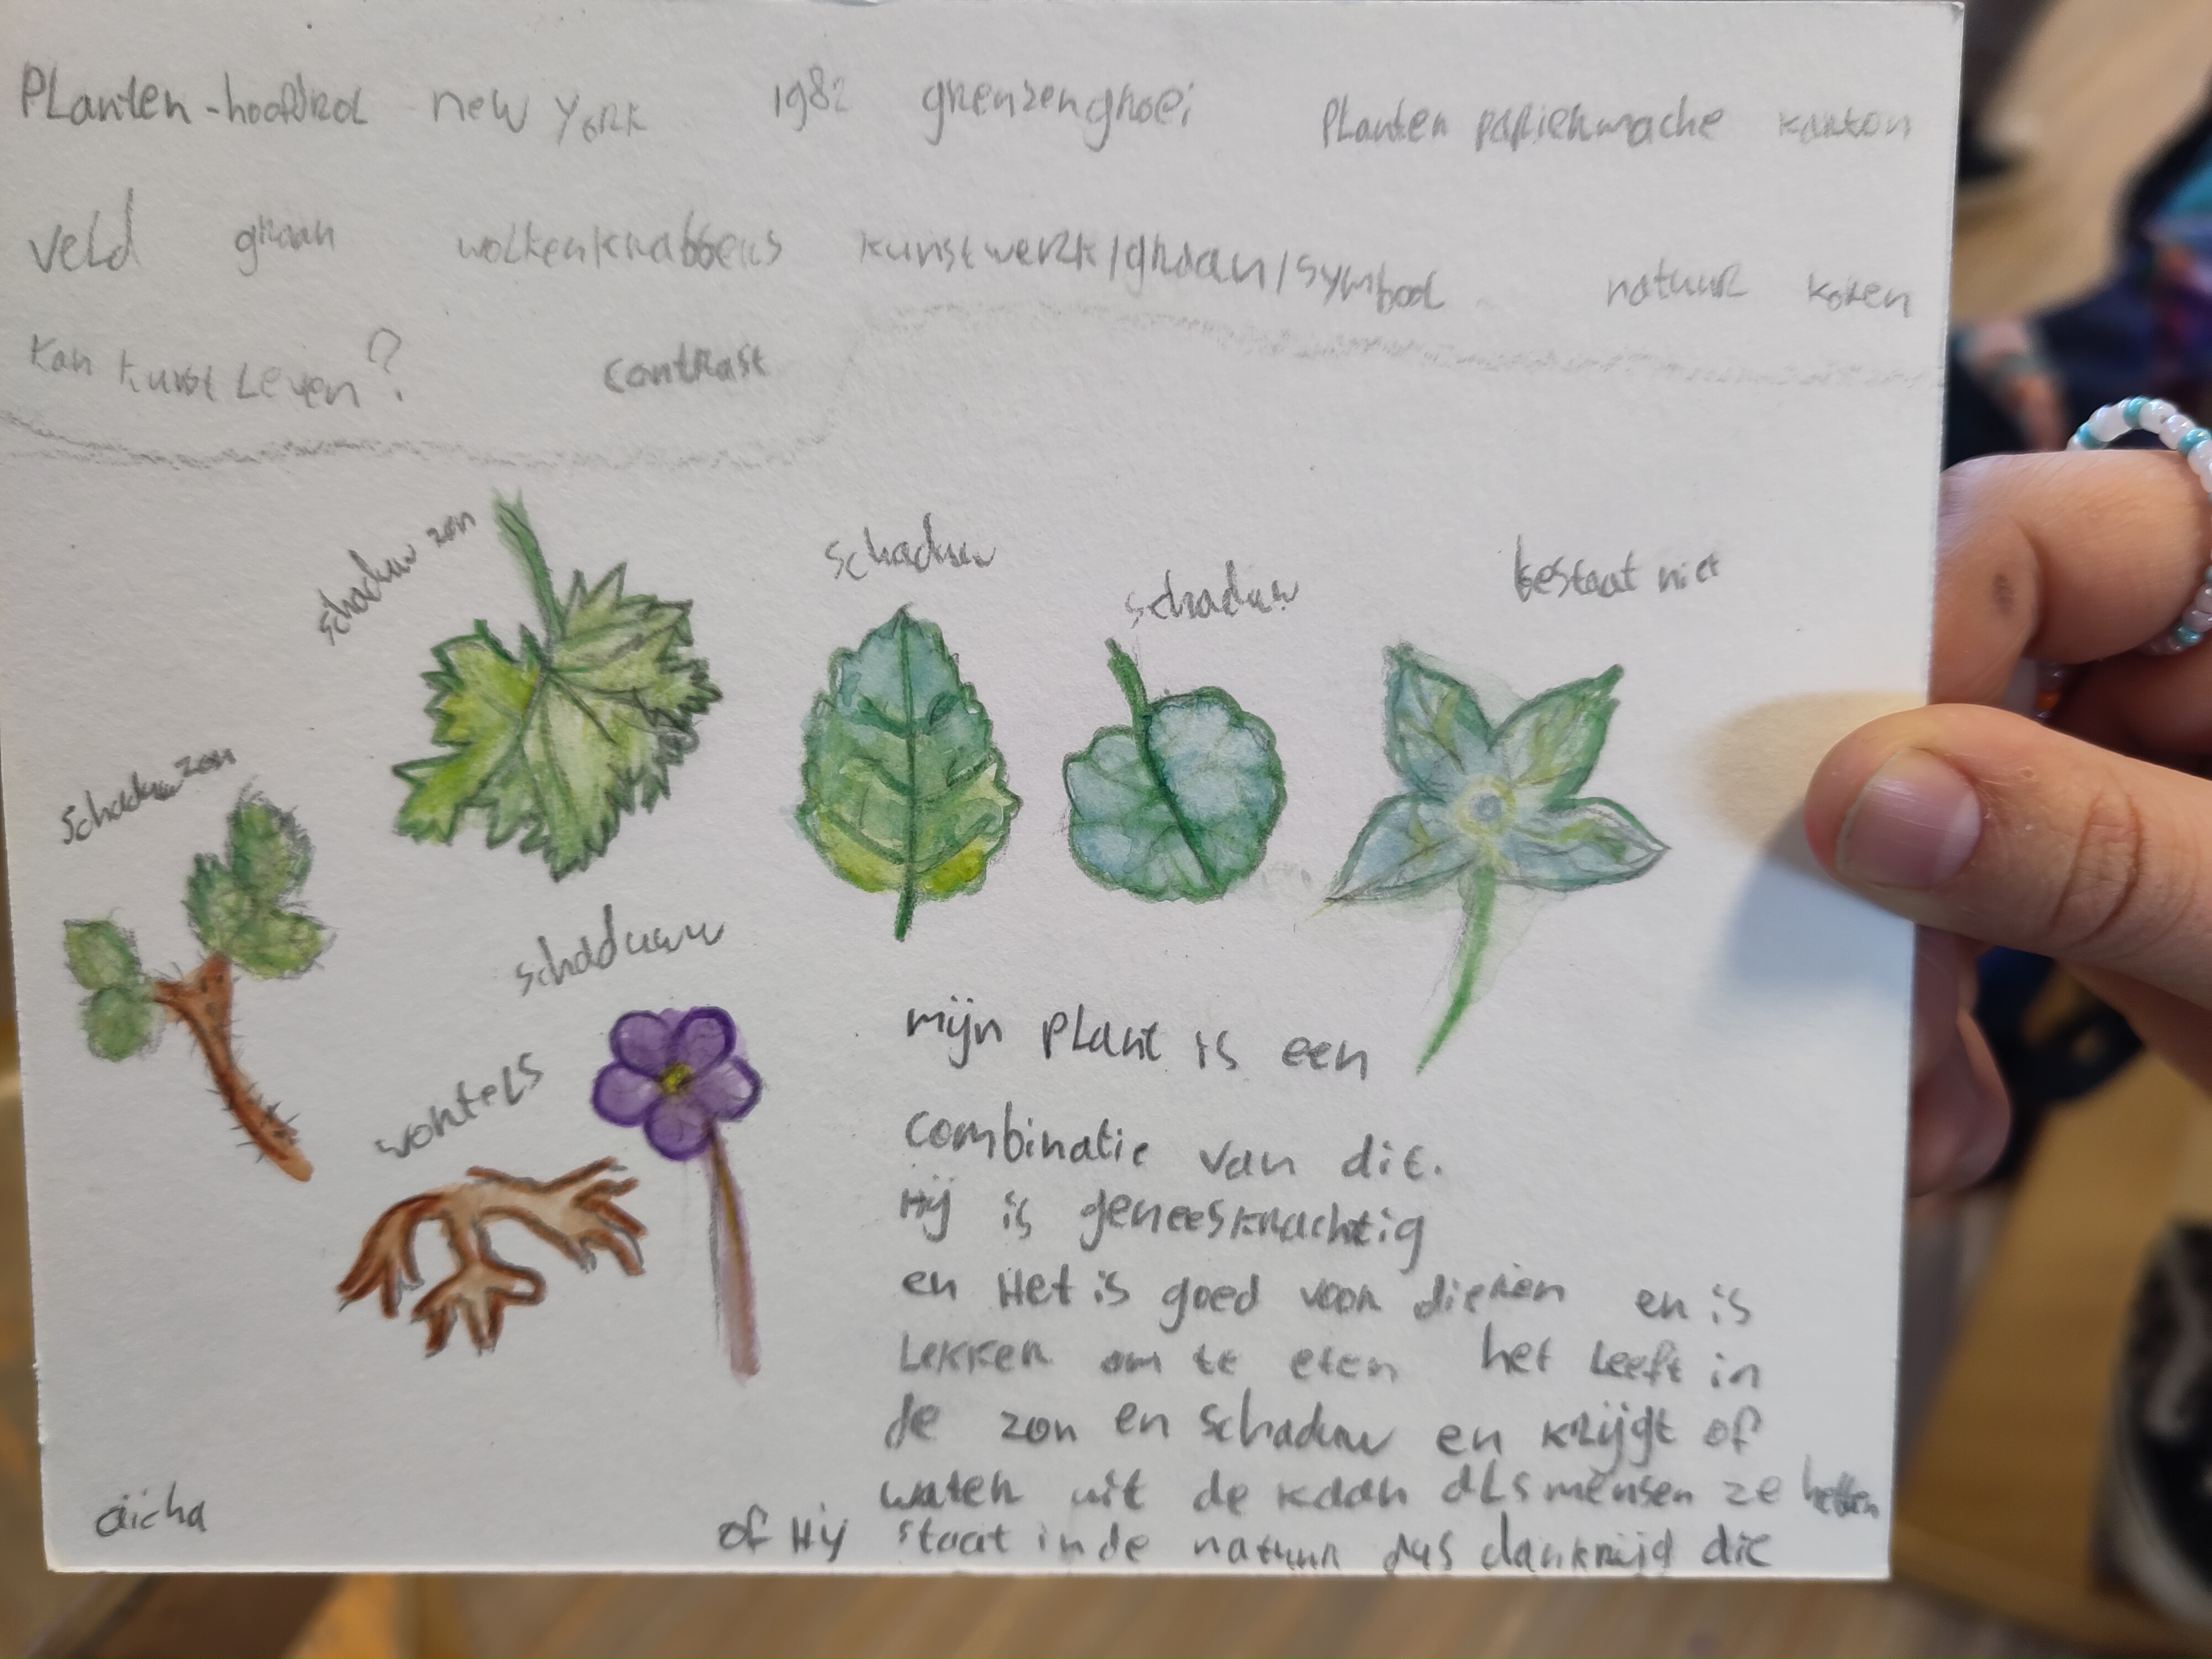 Planten-hoofdrol new york 1982 grenzengroei Planten papiermache karton
veld graan wolkenkrabbers kunstwerk/graan/symbool natuur koren
kan kunst Leven? contrast
schaduw zon
schaduw
schaduw
bestaat niet
schaduw zon
schaduw
wortels
mijn plant is een
combinatie van dit.
Hij is geneeskrachtig
en Het is goed voor dieren en is
Lekker om te eten het leeft in
de zon en schaduw en krijgt of
water uit de kaan als mensen ze hebben
of Hij staat in de natuur dus dan krijgt die
aicha